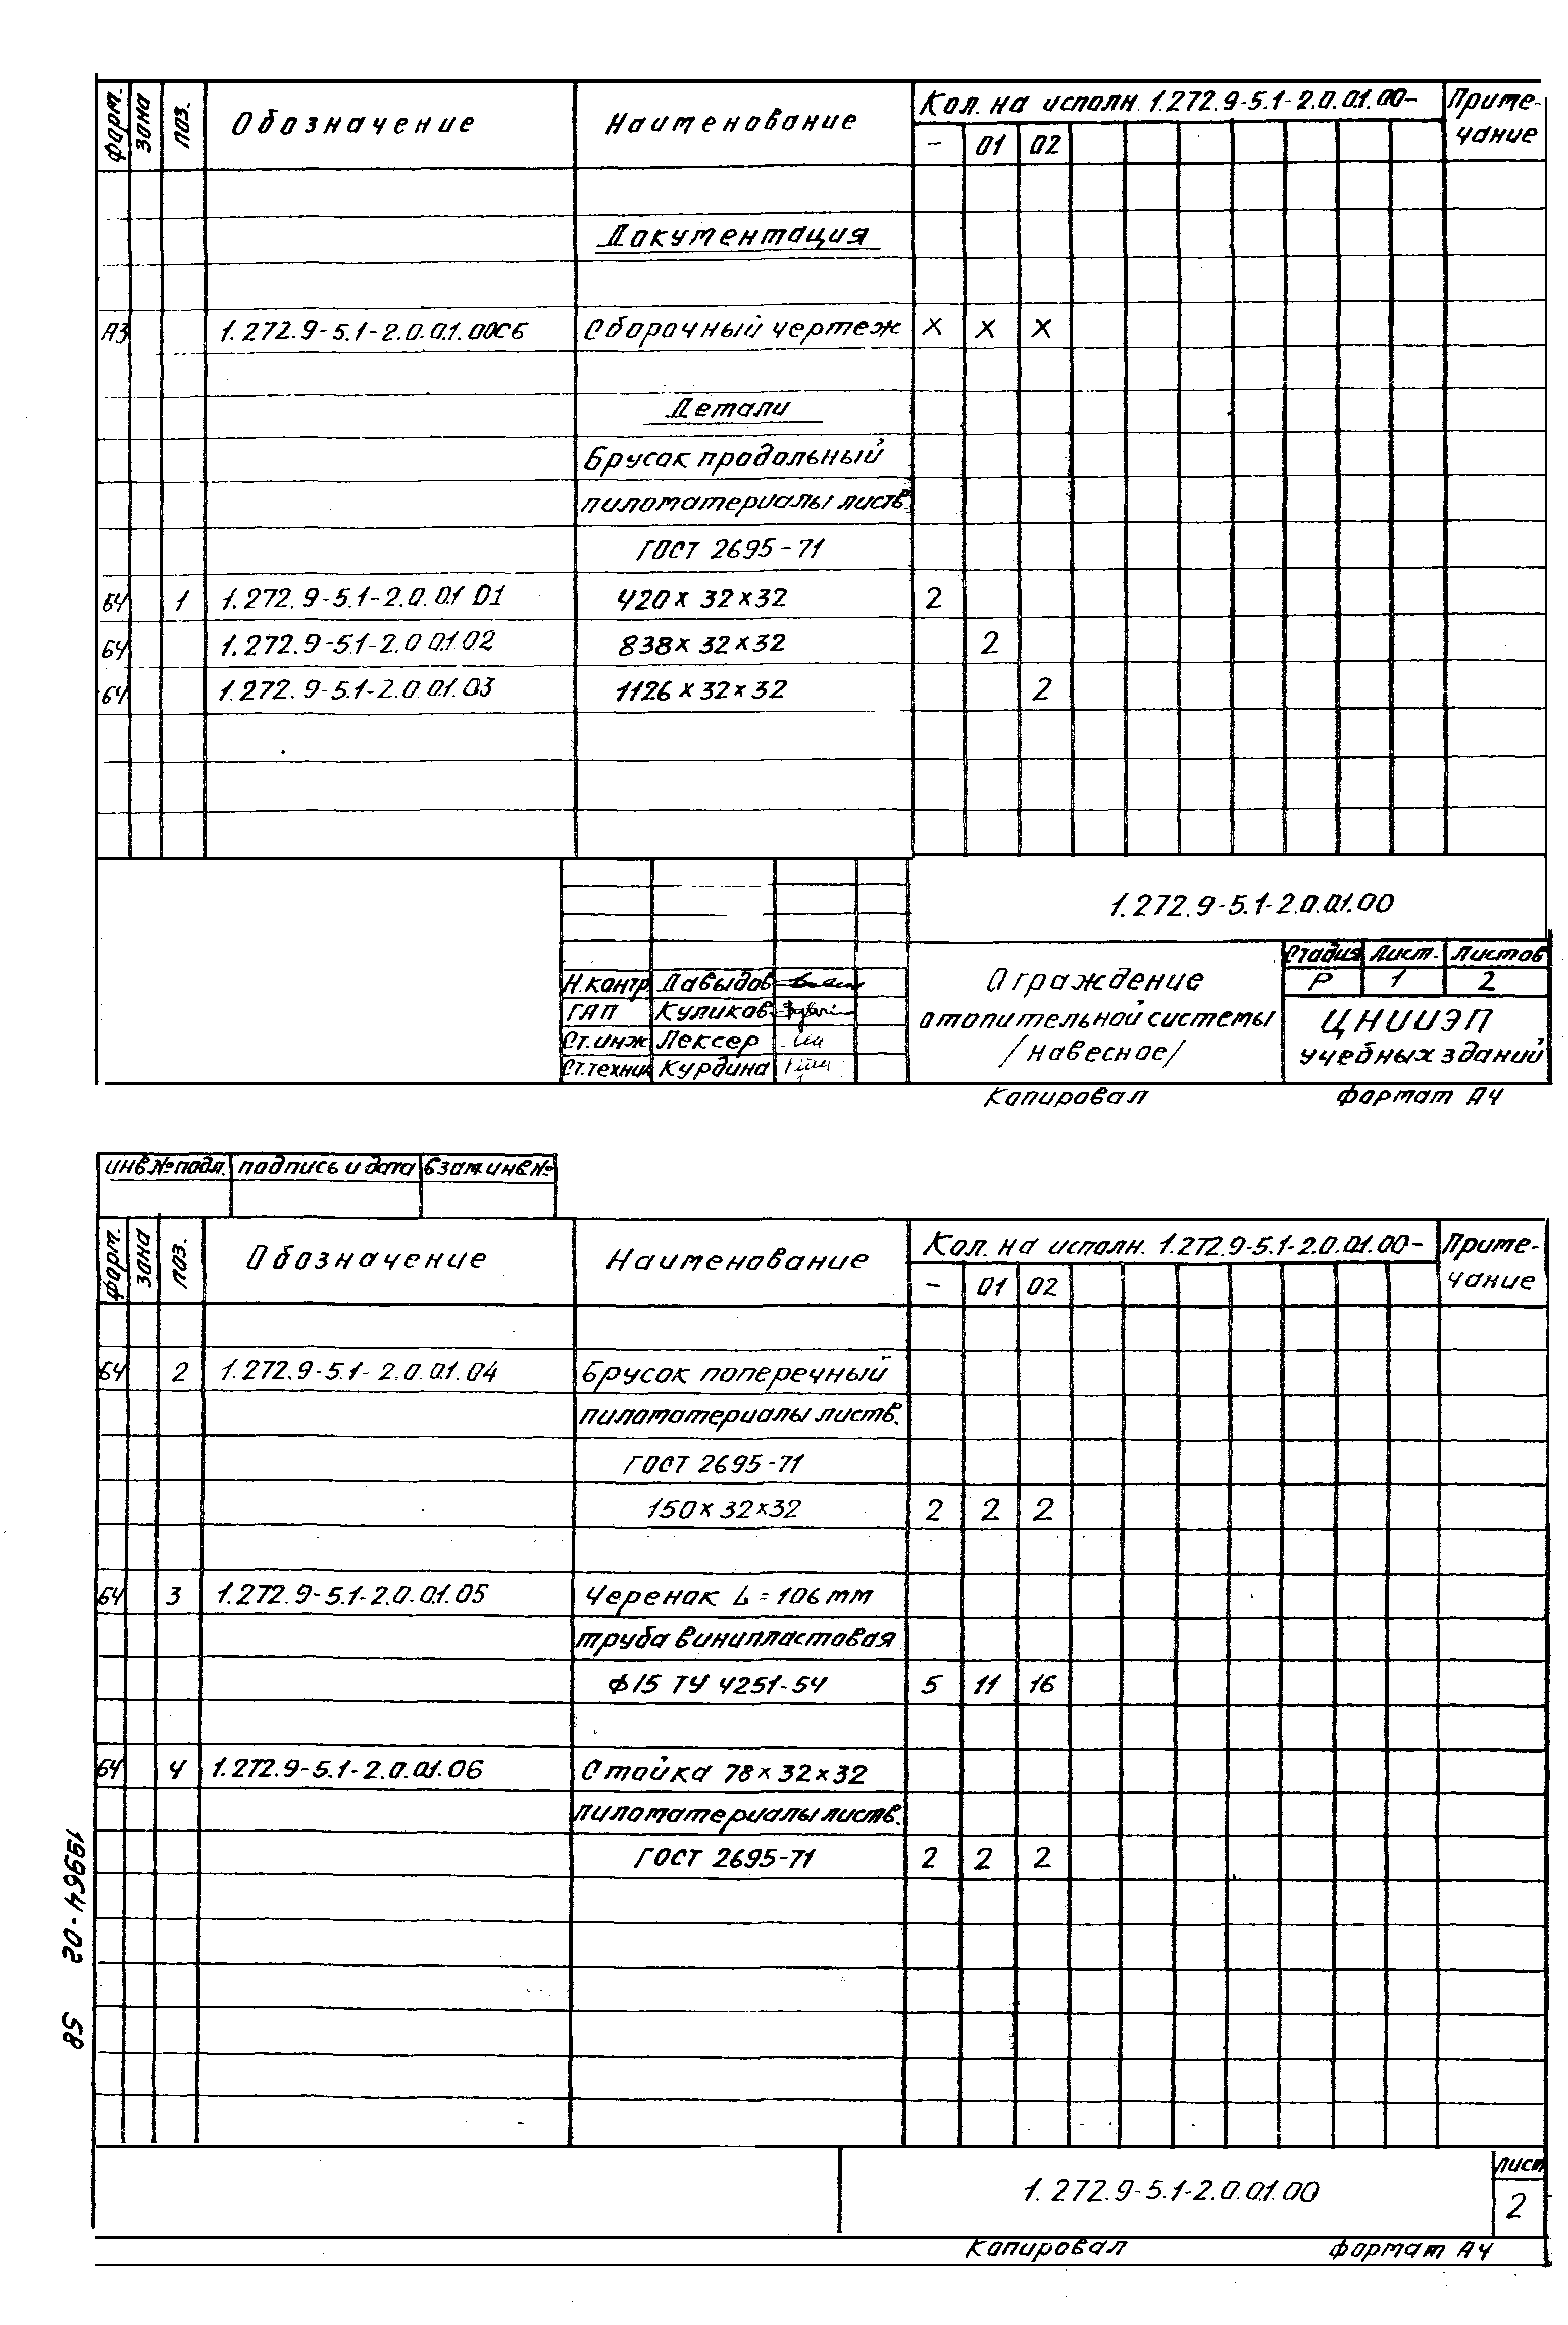 Форм. Зона Поз. Обозначение Наименование Кол. на исполн. 1.272.9-5.1-2.0.01.00- Приме-чание
- 01 02
Документация
А3 1.272.9-5.1-2.0.01.00СБ Сборочный чертеж X X X
Детали
Брусок продольный
пиломатериалы листв.
ГОСТ 2695-71
БЧ 1 1.272.9-5.1-2.0.01 01 420х32х32 2
БЧ 1.272.9-5.1-2.0.01.02 838х32х32 2
БЧ 1.272.9-5.1-2.0.01.03 1126х32х32 2
1.272.9-5.1-2.0.01.00
Стадия Лист. Листов
Р 1 2
Н.контр. Давыдов
ГАП Куликов
Ст.инж Лексер
Ст.техник Курдина
Ограждение
отопительной системы
/навесное/
ЦНИИЭП
учебных зданий
Копировал Формат А4
инв.№ подл. подпись и дата взам.инв.№
Форм. Зона Поз. Обозначение Наименование Кол. на исполн. 1.272.9-5.1-2.0.01.00- Приме-чание
- 01 02
БЧ 2 1.272.9-5.1-2.0.01.04 Брусок поперечный
пиломатериалы листв.
ГОСТ 2695-71
150х32х32 2 2 2
БЧ 3 1.272.9-5.1-2.0.01.05 Черенок L=106мм
труба винипластовая
Ф15 ТУ 4251-54 5 11 16
БЧ 4 1.272.9-5.1-2.0.01.06 Стойка 78х32х32
пиломатериалы листв.
ГОСТ 2695-71 2 2 2
19964-02 58
1.272.9-5.1-2.0.01.00
Лист
2
Копировал Формат А4